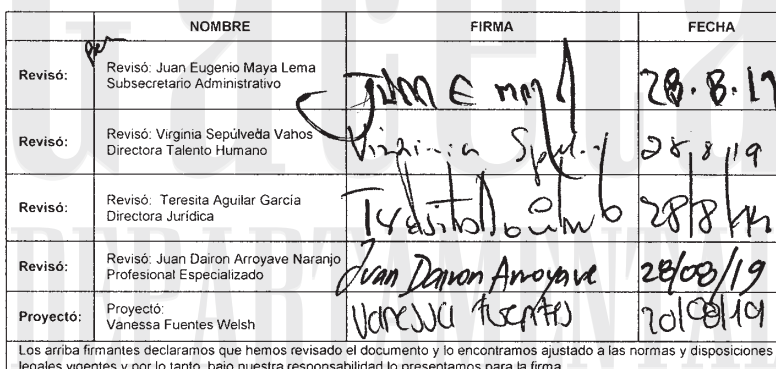 NOMBRE FIRMA FECHA
Revisó: Revisó: Juan Eugenio Maya Lema
Subsecretario Administrativo
28.8.19
Revisó: Revisó: Virginia Sepúlveda Vahos
Directora Talento Humano
Virginia 28/8/19
Revisó: Revisó: Teresita Aguilar García
Directora Jurídica
28/8/19
Revisó: Revisó: Juan Dairon Arroyave Naranjo
Profesional Especializado
Juan Dairon Arroyave 28/08/19
Proyectó: Proyectó:
Vanessa Fuentes Welsh
Vanessa Fuentes
Los arriba firmantes declaramos que hemos revisado el documento y lo encontramos ajustado a las normas y disposiciones
legales vigentes y por lo tanto, bajo nuestra responsabilidad lo presentamos para la firma.